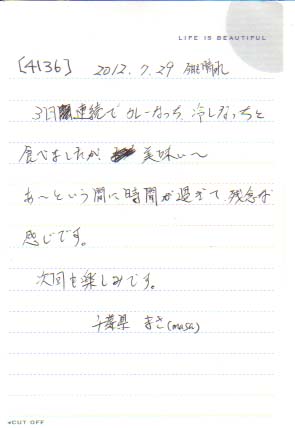 LIFE IS BEAUTIFUL
[4136] 2012.7.29 晴れ
3日連続でカレーなっち、冷しなっちと
食べましたが 美味い〜
あ〜という間に時間が過ぎて、残念な
感じです。
次回も楽しみです。
千葉県 まさ(masa)
CUT OFF